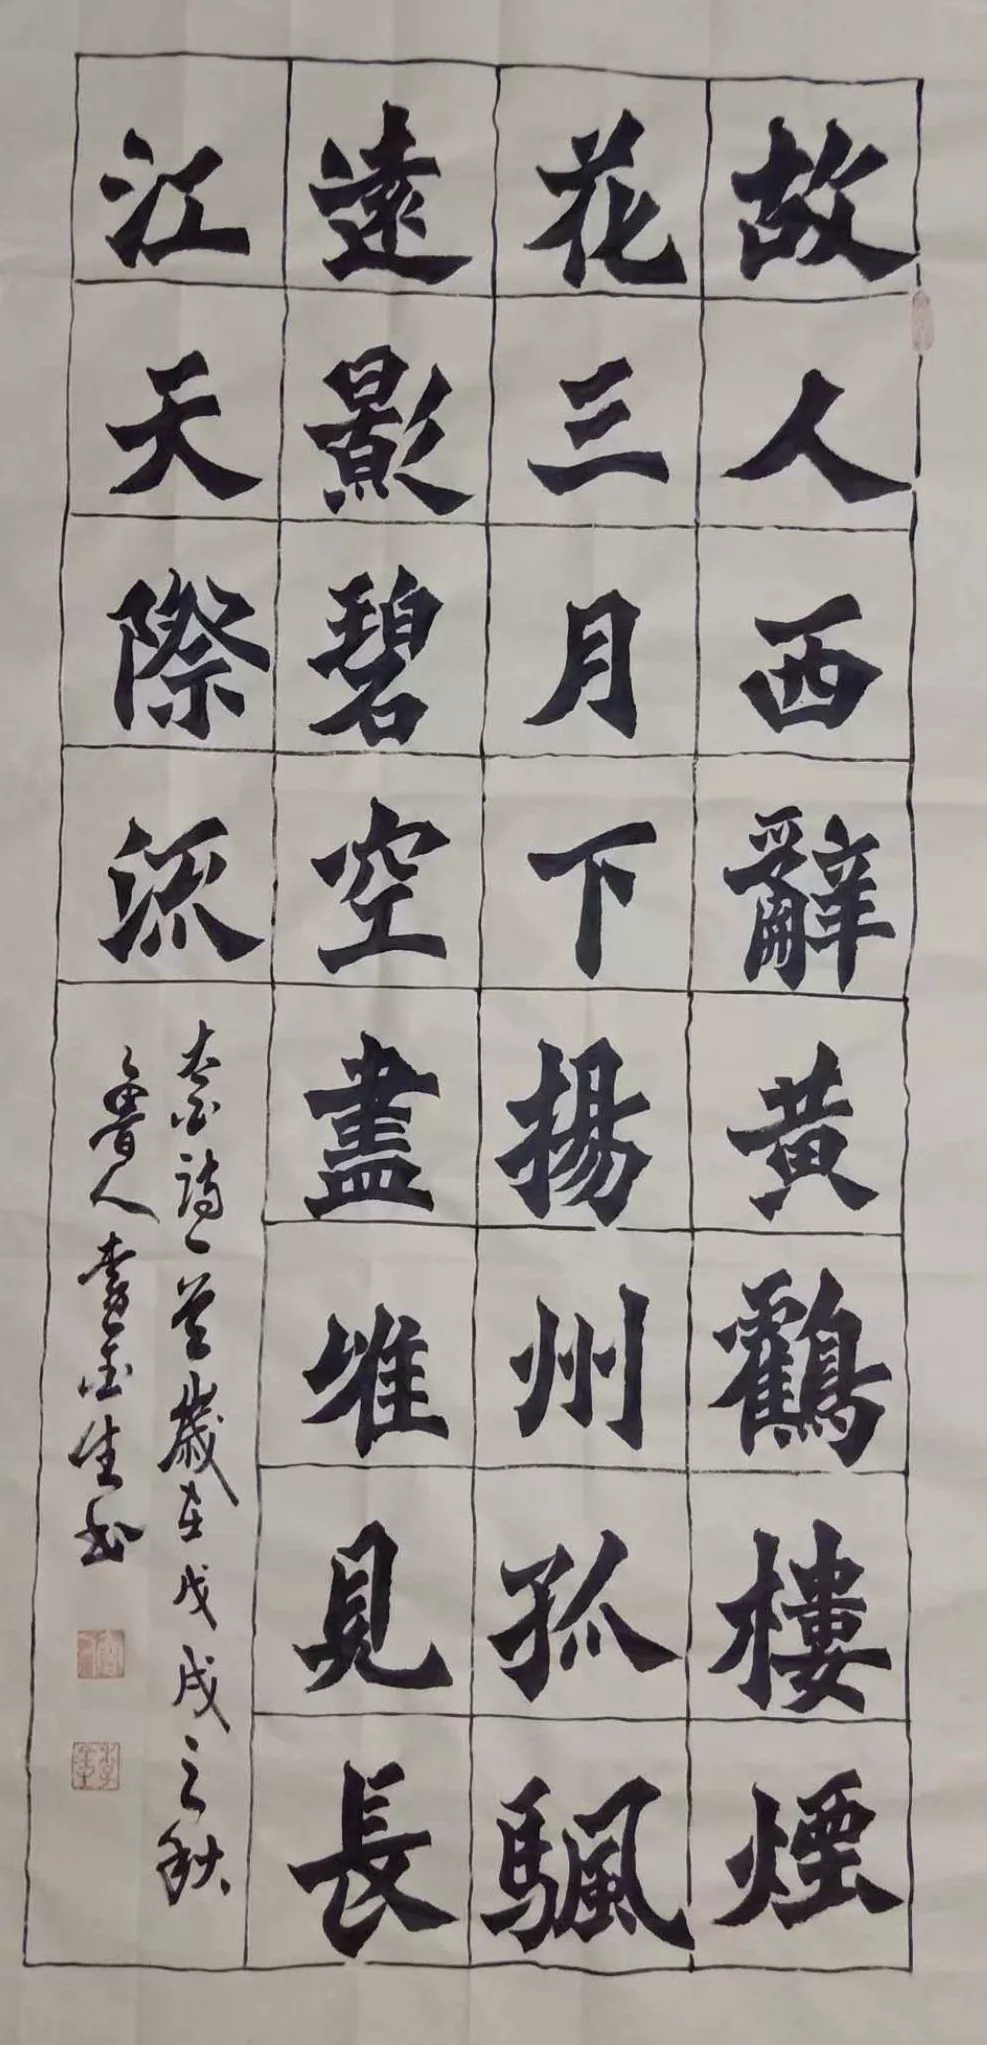 故人西辭黄鶴樓煙
花三月下揚州孤颿
遠影碧空盡唯見長
江天際流
太白詩一首歲在戊戌之秋
魯人李金生书